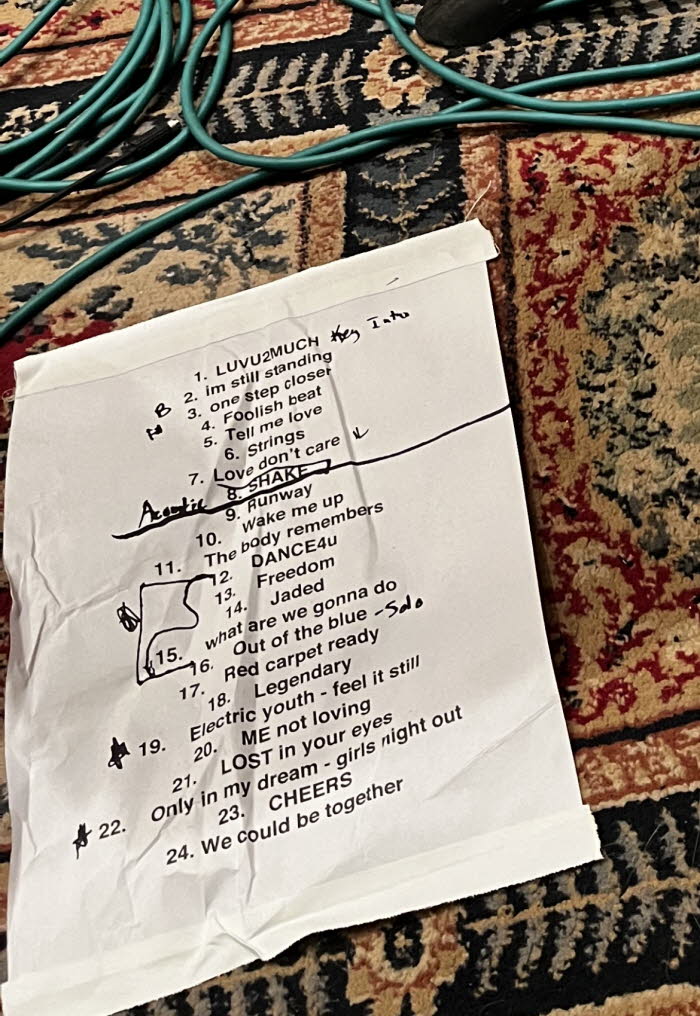 1. LUVU2MUCH Key Into
2. im still standing
B 3. one step closer
4. Foolish beat
5. Tell me love
6. Strings
7. Love don't care
Acoustic 8. SHAKE
9. Runway
10. Wake me up
11. The body remembers
12. DANCE4u
13. Freedom
14. Jaded
15. what are we gonna do
16. Out of the blue - Solo
17. Red carpet ready
18. Legendary
19. Electric youth - feel it still
20. ME not loving
21. LOST in your eyes
22. Only in my dream - girls night out
23. CHEERS
24. We could be together